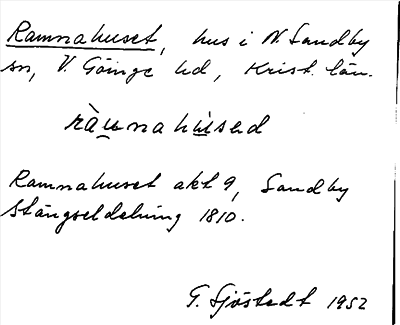 Ramnahuset, hus i N. Sandby
sn, V. Göinge hd, Krist. län.
Ramnahuset akt 9, Sandby
1810.
G. Sjöstedt 1952